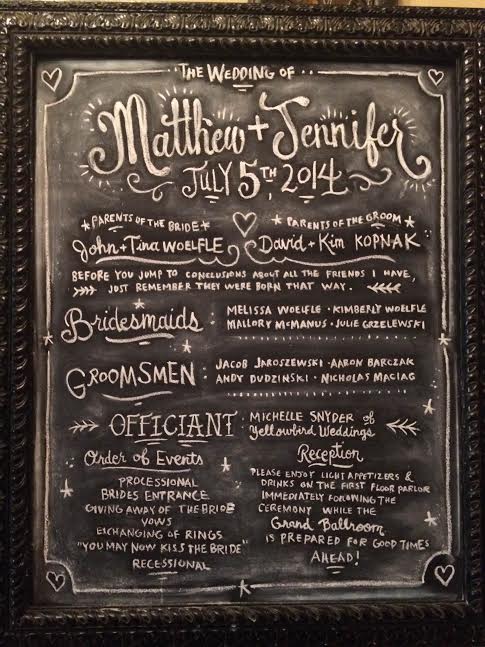 THE WEDDING OF
Matthew + Jennifer
JULY 5TH 2014
PARENTS OF THE BRIDE
John + Tina WOELFLE
PARENTS OF THE GROOM
David + Kim KOPNAK
BEFORE YOU JUMP TO CONCLUSIONS ABOUT ALL THE FRIENDS I HAVE,
JUST REMEMBER THEY WERE BORN THAT WAY.
Bridesmaids: MELISSA WOELFLE · KIMBERLY WOELFLE
MALLORY McMANUS · JULIE GRZELEWSKI
GROOMSMEN: JACOB JAROSZEWSKI · AARON BARCZAK
ANDY DUDZINSKI · NICHOLAS MACIAG
OFFICIANT: MICHELLE SNYDER of
Yellowbird Weddings
Order of Events
PROCESSIONAL
BRIDES ENTRANCE
GIVING AWAY OF THE BRIDE
VOWS
EXCHANGING OF RINGS
"YOU MAY NOW KISS THE BRIDE"
RECESSIONAL
Reception
PLEASE ENJOY LIGHT APPETIZERS &
DRINKS ON THE FIRST FLOOR PARLOR
IMMEDIATELY FOLLOWING THE
CEREMONY WHILE THE
Grand Ballroom
IS PREPARED FOR GOOD TIMES
AHEAD!